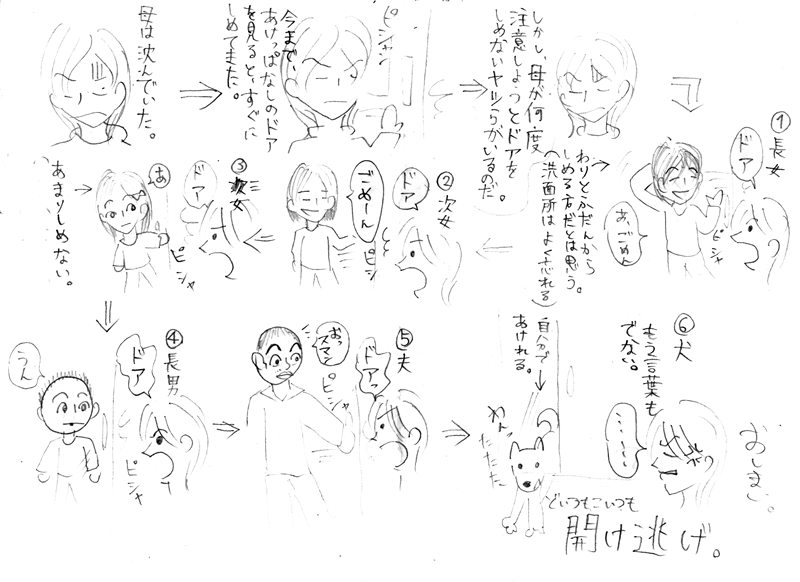 母は沈んでいた。
今まで、
あけっぱなしのドア
を見ると、すぐに
しめてきた。
ピシャン
しかし、母が何度
注意しようとドアを
しめないヤツらがいるのだ。
①長女
ドアッ
あ、ごめん
ピシャ
わりとふだんから
しめる方だとは思う。
(洗面所はよく忘れる)
②次女
ドアッ
ごめーん
ピシャ
③三女
ドアッ
あっ
ピシャ
あまりしめない。
④長男
ドアッ
うん
ピシャ
⑤夫
ドアッ
おっ
スマン
ピシャ
⑥犬
もう言葉も
でない。
…………
自分で
あけれる。
わんっ
たたた
どいつもこいつも
開け逃げ。
おしまい。